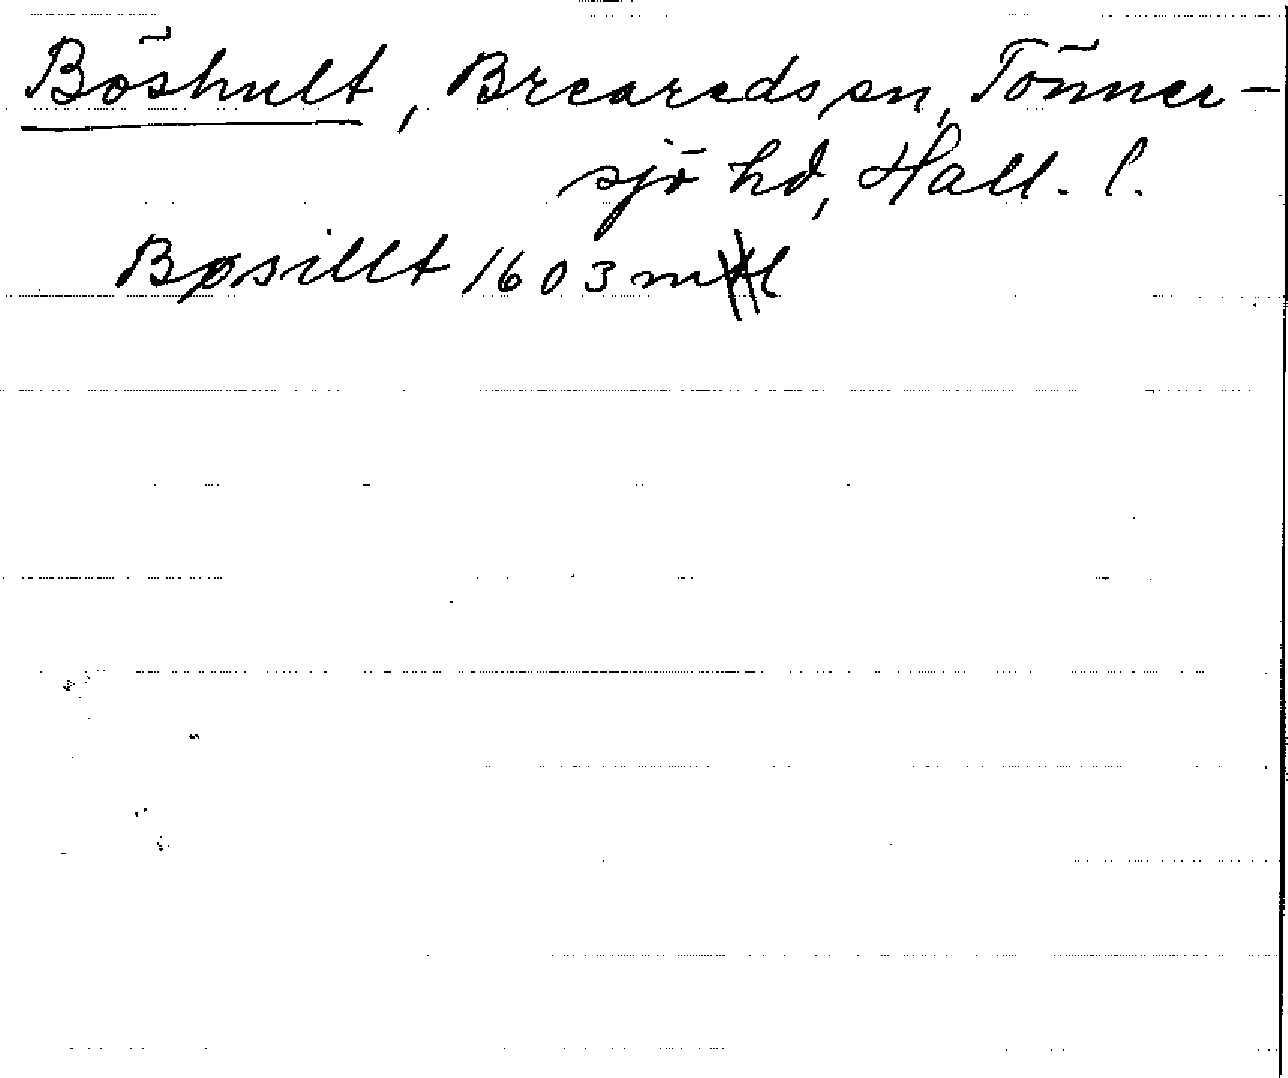 Böshult, Breareds sn, Tönner-
sjö hd, Hall. l.
Bøsillt 1603 ml